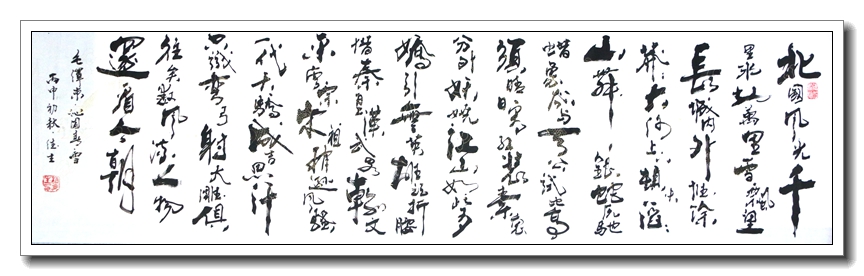 北國风光千
里冰封萬里雪飘望
長城内外惟馀
莽莽大河上下頓失滔滔
山舞银蛇原驰
蜡象欲与天公试比高
須晴日看红装素裹
分外妖娆江山如此多
嬌引無数英雄竞折腰
惜秦皇漢武略輸文
采唐宗宋祖稍逊风骚
一代天驕成吉思汗
只識弯弓射大雕俱
往矣数风流人物
還看今朝
毛澤東沁园春雪
丙申初秋